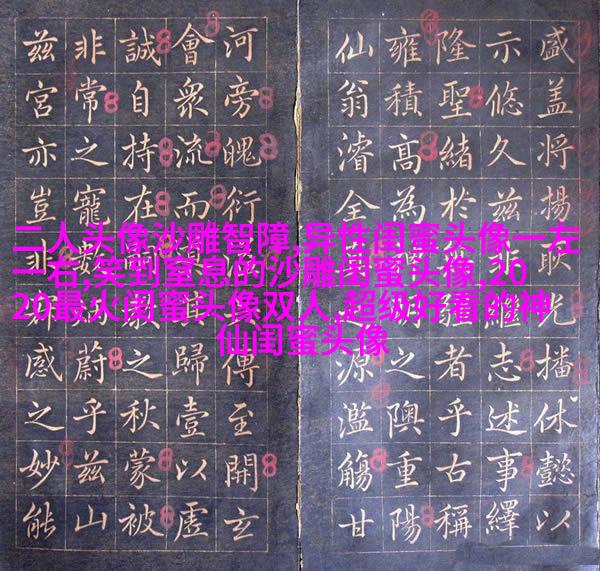 二人头像沙雕智障,异性闺蜜头像一左
一右,笑到窒息的沙雕闺蜜头像,20
20最火闺蜜头像双人,超级好看的神
仙闺蜜头像
盛盖将揚耿光播休懿以
示悠久兹非雖志述事繹
隆聖緒於者乎古稱
雍積高為之隩重陽
仙翁濬全源濫觴甘
河旁魄衍傳至開玄
會衆流而歸壹以虛
誠自持在之秋蒙被
非常之寵數蔚乎兹山
兹宮亦豈非感之妙能